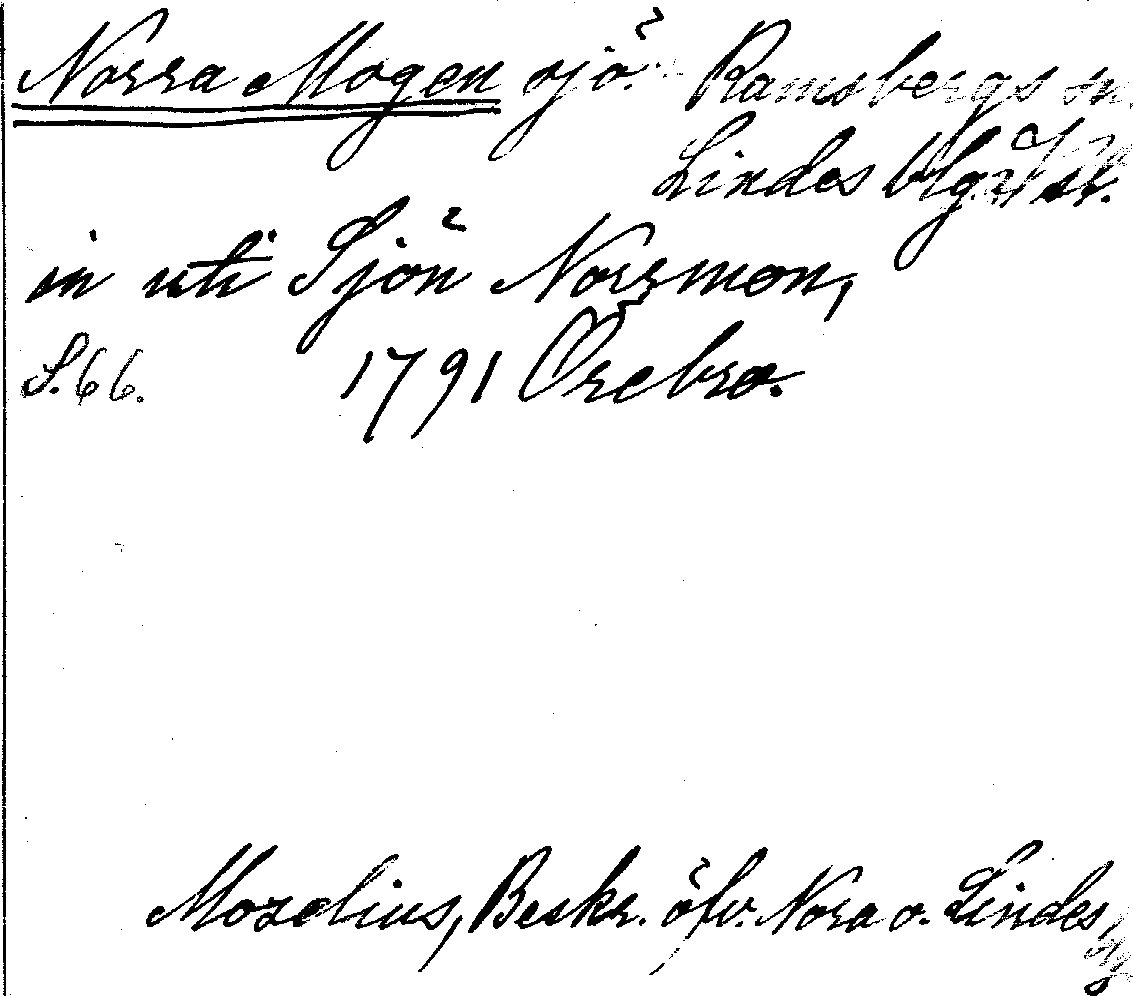 Norra Mogen sjö. Ramsbergs sn.
Lindes blg
in uti Sjön Norrmon,
S.66. 1791 Örebro.
Mozelius, Beskr. öfv. Nora o. Lindes